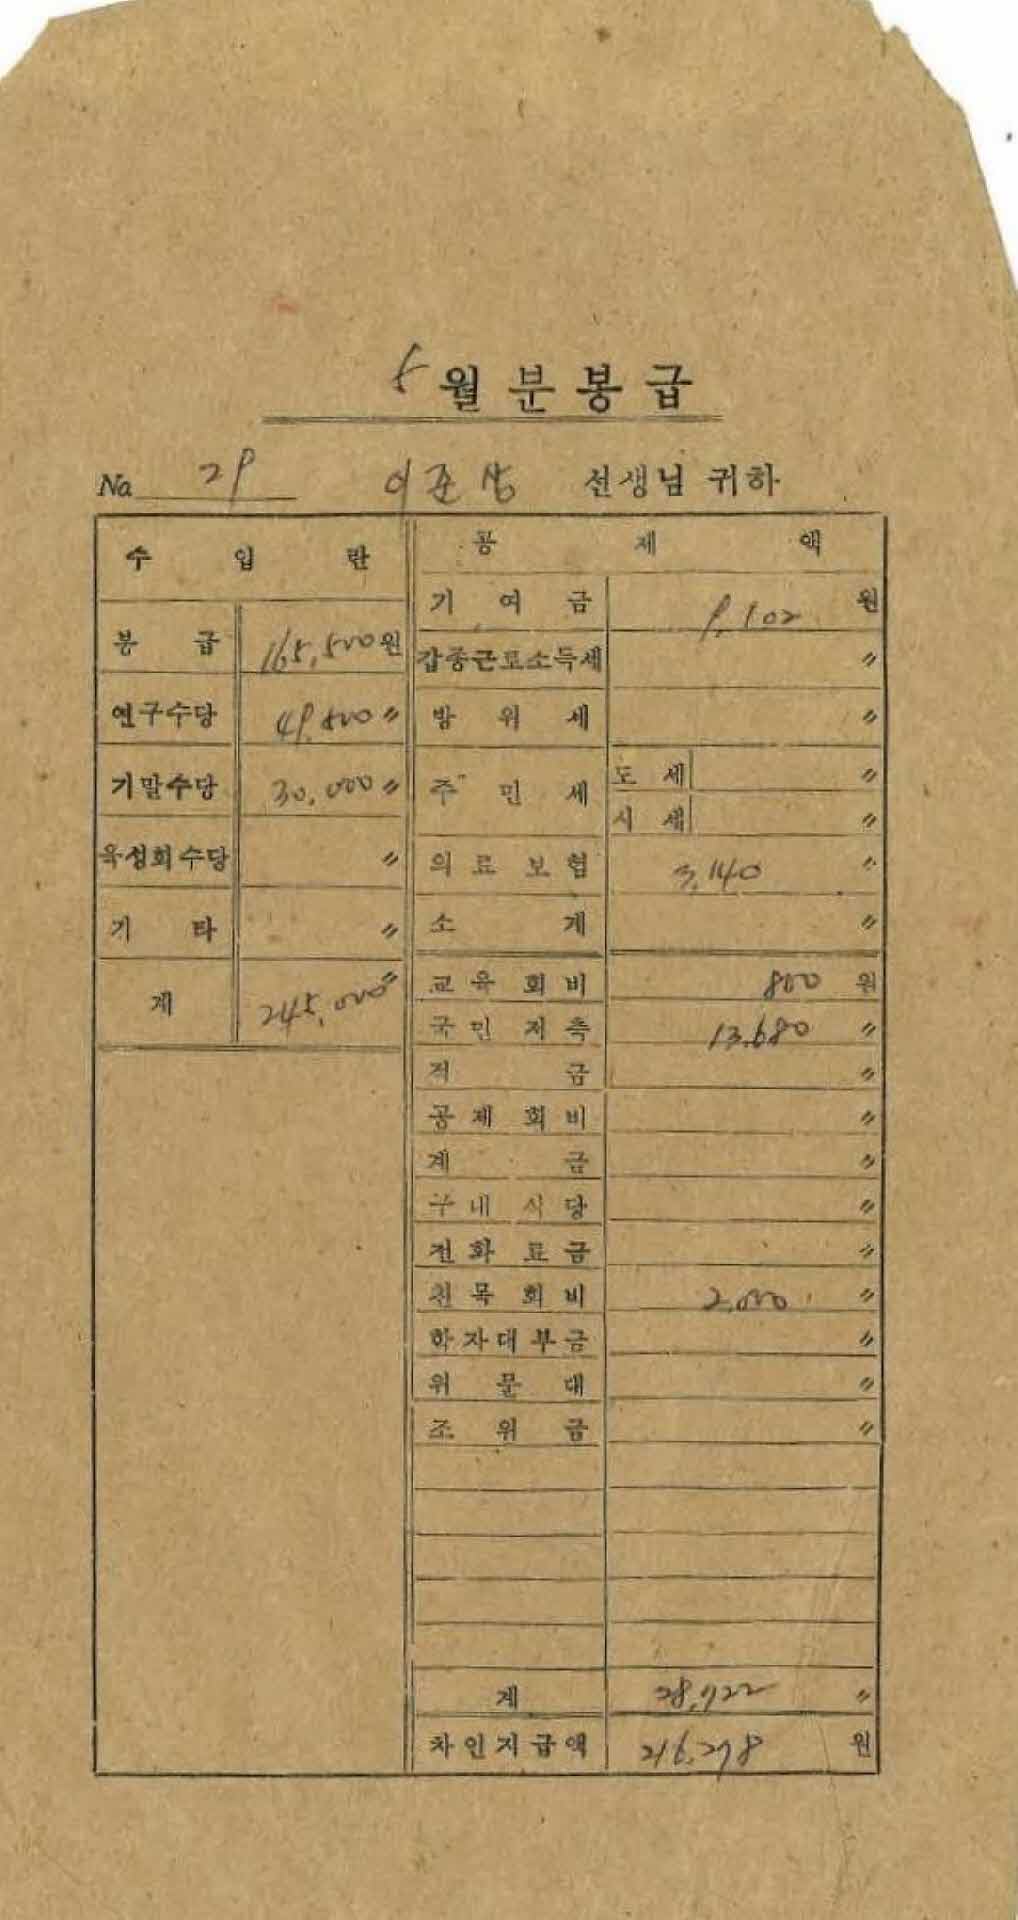 5 월 분 봉 급
No 29 이준상 선생님 귀하
수 입 란
봉 급 165,500 원
연구수당 49,500 〃
기말수당 30,000 〃
육성회수당 〃
기 타 〃
계 245,000 〃
공 제 액
기 여 금 9,102 원
갑종근로소득세 〃
방 위 세 〃
주 민 세 도 세 〃
시 세 〃
의 료 보 험 3,140 〃
소 계 〃
교 육 회 비 800 원
국 민 저 축 13,680 〃
적 금 〃
공 제 회 비 〃
계 금 〃
구 내 식 당 〃
전 화 료 금 〃
친 목 회 비 2,000 〃
학 자 대 부 금 〃
위 문 대 〃
조 위 금 〃
계 28,722 〃
차 인 지 급 액 216,278 원